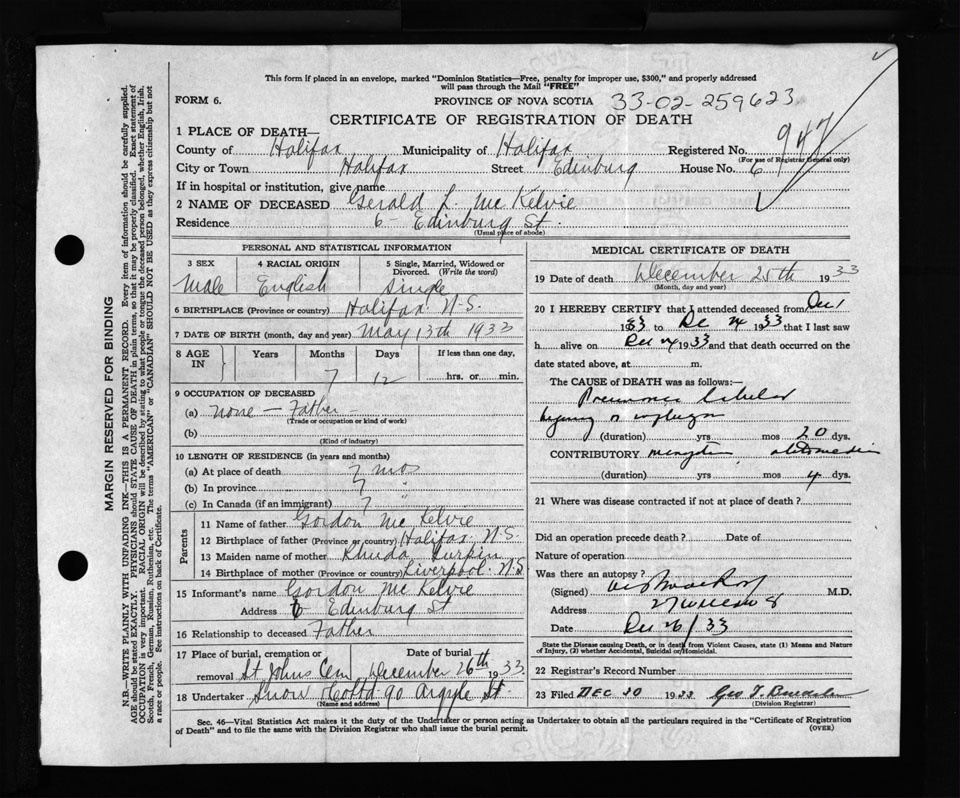 This form if placed in an envelope, marked "Dominion Statistics—Free, penalty for improper use, $300," and properly addressed
will pass through the Mail "FREE"
FORM 6. PROVINCE OF NOVA SCOTIA 33-02-259623
CERTIFICATE OF REGISTRATION OF DEATH
1 PLACE OF DEATH— 947
County of Halifax Municipality of Halifax Registered No.
(For use of Registrar General only)
City or Town Halifax Street Edinburg House No. 6
If in hospital or institution, give name
2 NAME OF DECEASED Gerald L. McKelvie
Residence 6 - Edinburg St.
(Usual place of abode)
PERSONAL AND STATISTICAL INFORMATION
3 SEX 4 RACIAL ORIGIN 5 Single, Married, Widowed or
Divorced. (Write the word)
Male English Single
6 BIRTHPLACE (Province or country) Halifax N.S.
7 DATE OF BIRTH (month, day and year) May 13th 1933
8 AGE IN Years Months Days If less than one day,
7 12 hrs. or min.
9 OCCUPATION OF DECEASED
(a) None - Father -
(Trade or occupation or kind of work)
(b)
(Kind of industry)
10 LENGTH OF RESIDENCE (in years and months)
(a) At place of death 7 mos
(b) In province 7 "
(c) In Canada (if an immigrant) 7 "
Parents
11 Name of father Gordon McKelvie
12 Birthplace of father (Province or country) Halifax N.S.
13 Maiden name of mother Rhuda
14 Birthplace of mother (Province or country) Liverpool N.S.
15 Informant's name Gordon McKelvie
Address 6 Edinburg St
16 Relationship to deceased Father
17 Place of burial, cremation or Date of burial
removal St Johns Cem December 26th 1933
18 Undertaker Snow 90 Argyle St.
(Name and address)
MEDICAL CERTIFICATE OF DEATH
19 Date of death December 25th 1933
(Month, day and year)
20 I HEREBY CERTIFY that I attended deceased from Dec 1
1933 to De 24 1933 that I last saw
h alive on Dec 24 1933 and that death occurred on the
date stated above, at m.
The CAUSE OF DEATH was as follows:
Pneumonia lobular
(duration) yrs mos 20 dys.
CONTRIBUTORY
(duration) yrs mos 4 dys.
21 Where was disease contracted if not at place of death?
Did an operation precede death? Date of
Nature of operation
Was there an autopsy?
(Signed) M.D.
Address
Date Dec 26/33
State the Disease causing Death, or in death from Violent Causes, state (1) Means and Nature
of Injury, (2) whether Accidental, Suicidal or Homicidal.
22 Registrar's Record Number
23 Filed DEC 30 1933 Geo T.
(Division Registrar)
Sec. 46—Vital Statistics Act makes it the duty of the Undertaker or person acting as Undertaker to obtain all the particulars required in the "Certificate of Registration
of Death" and to file the same with the Division Registrar who shall issue the burial permit. (OVER)
MARGIN RESERVED FOR BINDING
N.B.—WRITE PLAINLY WITH UNFADING INK—THIS IS A PERMANENT RECORD. Every item of information should be carefully supplied.
AGE should be stated EXACTLY. PHYSICIANS should STATE CAUSE OF DEATH in plain terms, so that it may be properly classified. Exact statement of
OCCUPATION is very important. RACIAL ORIGIN will be described by stating to what people or tongue the deceased person belonged, whether English, Irish,
Scotch, French, German, Russian, Ruthenian, etc. The terms "AMERICAN" or "CANADIAN" SHOULD NOT BE USED as they express citizenship but not
a race or people. See instructions on back of Certificate.